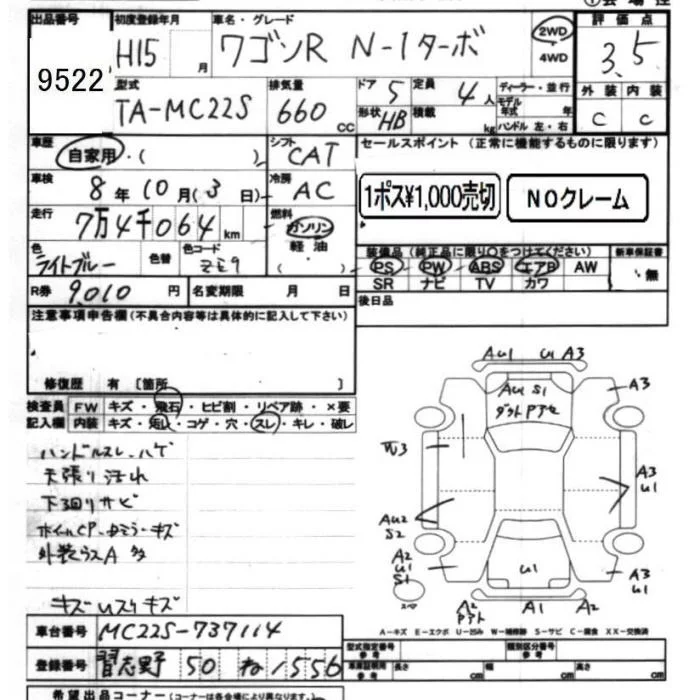 ①会場控
出品番号 初度登録年月 車名・グレード 評価点
9522 H15 月 ワゴンR N-1ターボ 2WD 4WD 3.5
型式 排気量 ドア 定員 ディーラー・並行 外装 内装
TA-MC22S 660 CC 5 4人 モデル年式 年 C C
形状 HB 積載 kg ハンドル 左・右
車歴 シフト セールスポイント (正常に機能するものに限ります)
自家用・( ) CAT
車検 冷房
8年10月(3日) AC 1ポス¥1,000売切 NOクレーム
走行 燃料
7万4千064km ガソリン
軽油
色 色替 色コード 装備品 (純正品に限り○をつけてください) 新車保証書
ライトブルー ZE9 ( ) PS PW ABS エアB AW 無
SR ナビ TV カワ
R券 9,010円 名変期限 月 日 後日品
注意事項申告欄(不具合内容等は具体的に記入して下さい)
修復歴 有 〔箇所 〕
検査員 FW キズ・飛石・ヒビ割・リペア跡・×要
記入欄 内装 キズ・・コゲ・穴・スレ・キレ・破レ
ハンドルスレ・ハゲ
天張り汚れ
下廻りサビ
ホイルCP・キズ
外装ウスA 多
キズUスリキズ
AU1 U A3
AU S1
A3
W3
A3
U1
AU2
S2
A2
U1
S1
U1
A3
U1
スペ
A2 A1 A2
A-キズ E-エクボ U-凹み W-補修跡 S-サビ C-腐食 XX-交換済
車台番号 MC22S-737114
登録番号 習志野 50 ね 1556
型式指定番号 参考 類別区分番号 参考
車庫証明用 参考 長さ cm 幅 cm 高さ cm
希望出品コーナー (コーナーは各会場により異なります。)